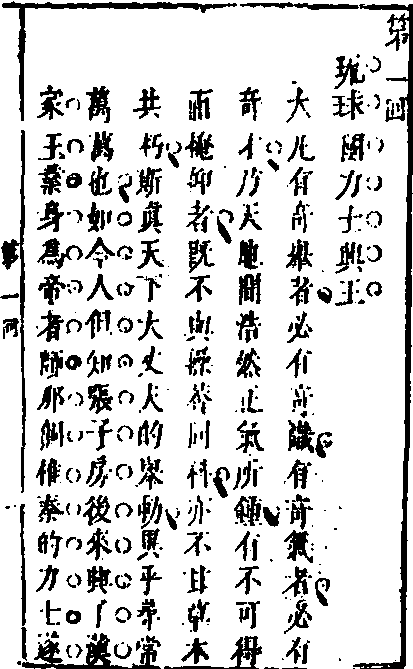 第一回
琉球國力士興王
大凡有奇舉者必有奇識有奇氣者必有
奇才乃天地間浩然正氣所鍾有不可得
而掩抑者既不與操莽同科亦不甘草木
共朽斯真天下大丈夫的舉動異乎尋常
萬萬也如今人但知張子房後來興了漢
家王業身爲帝者師那個椎秦的力士遂
第一回